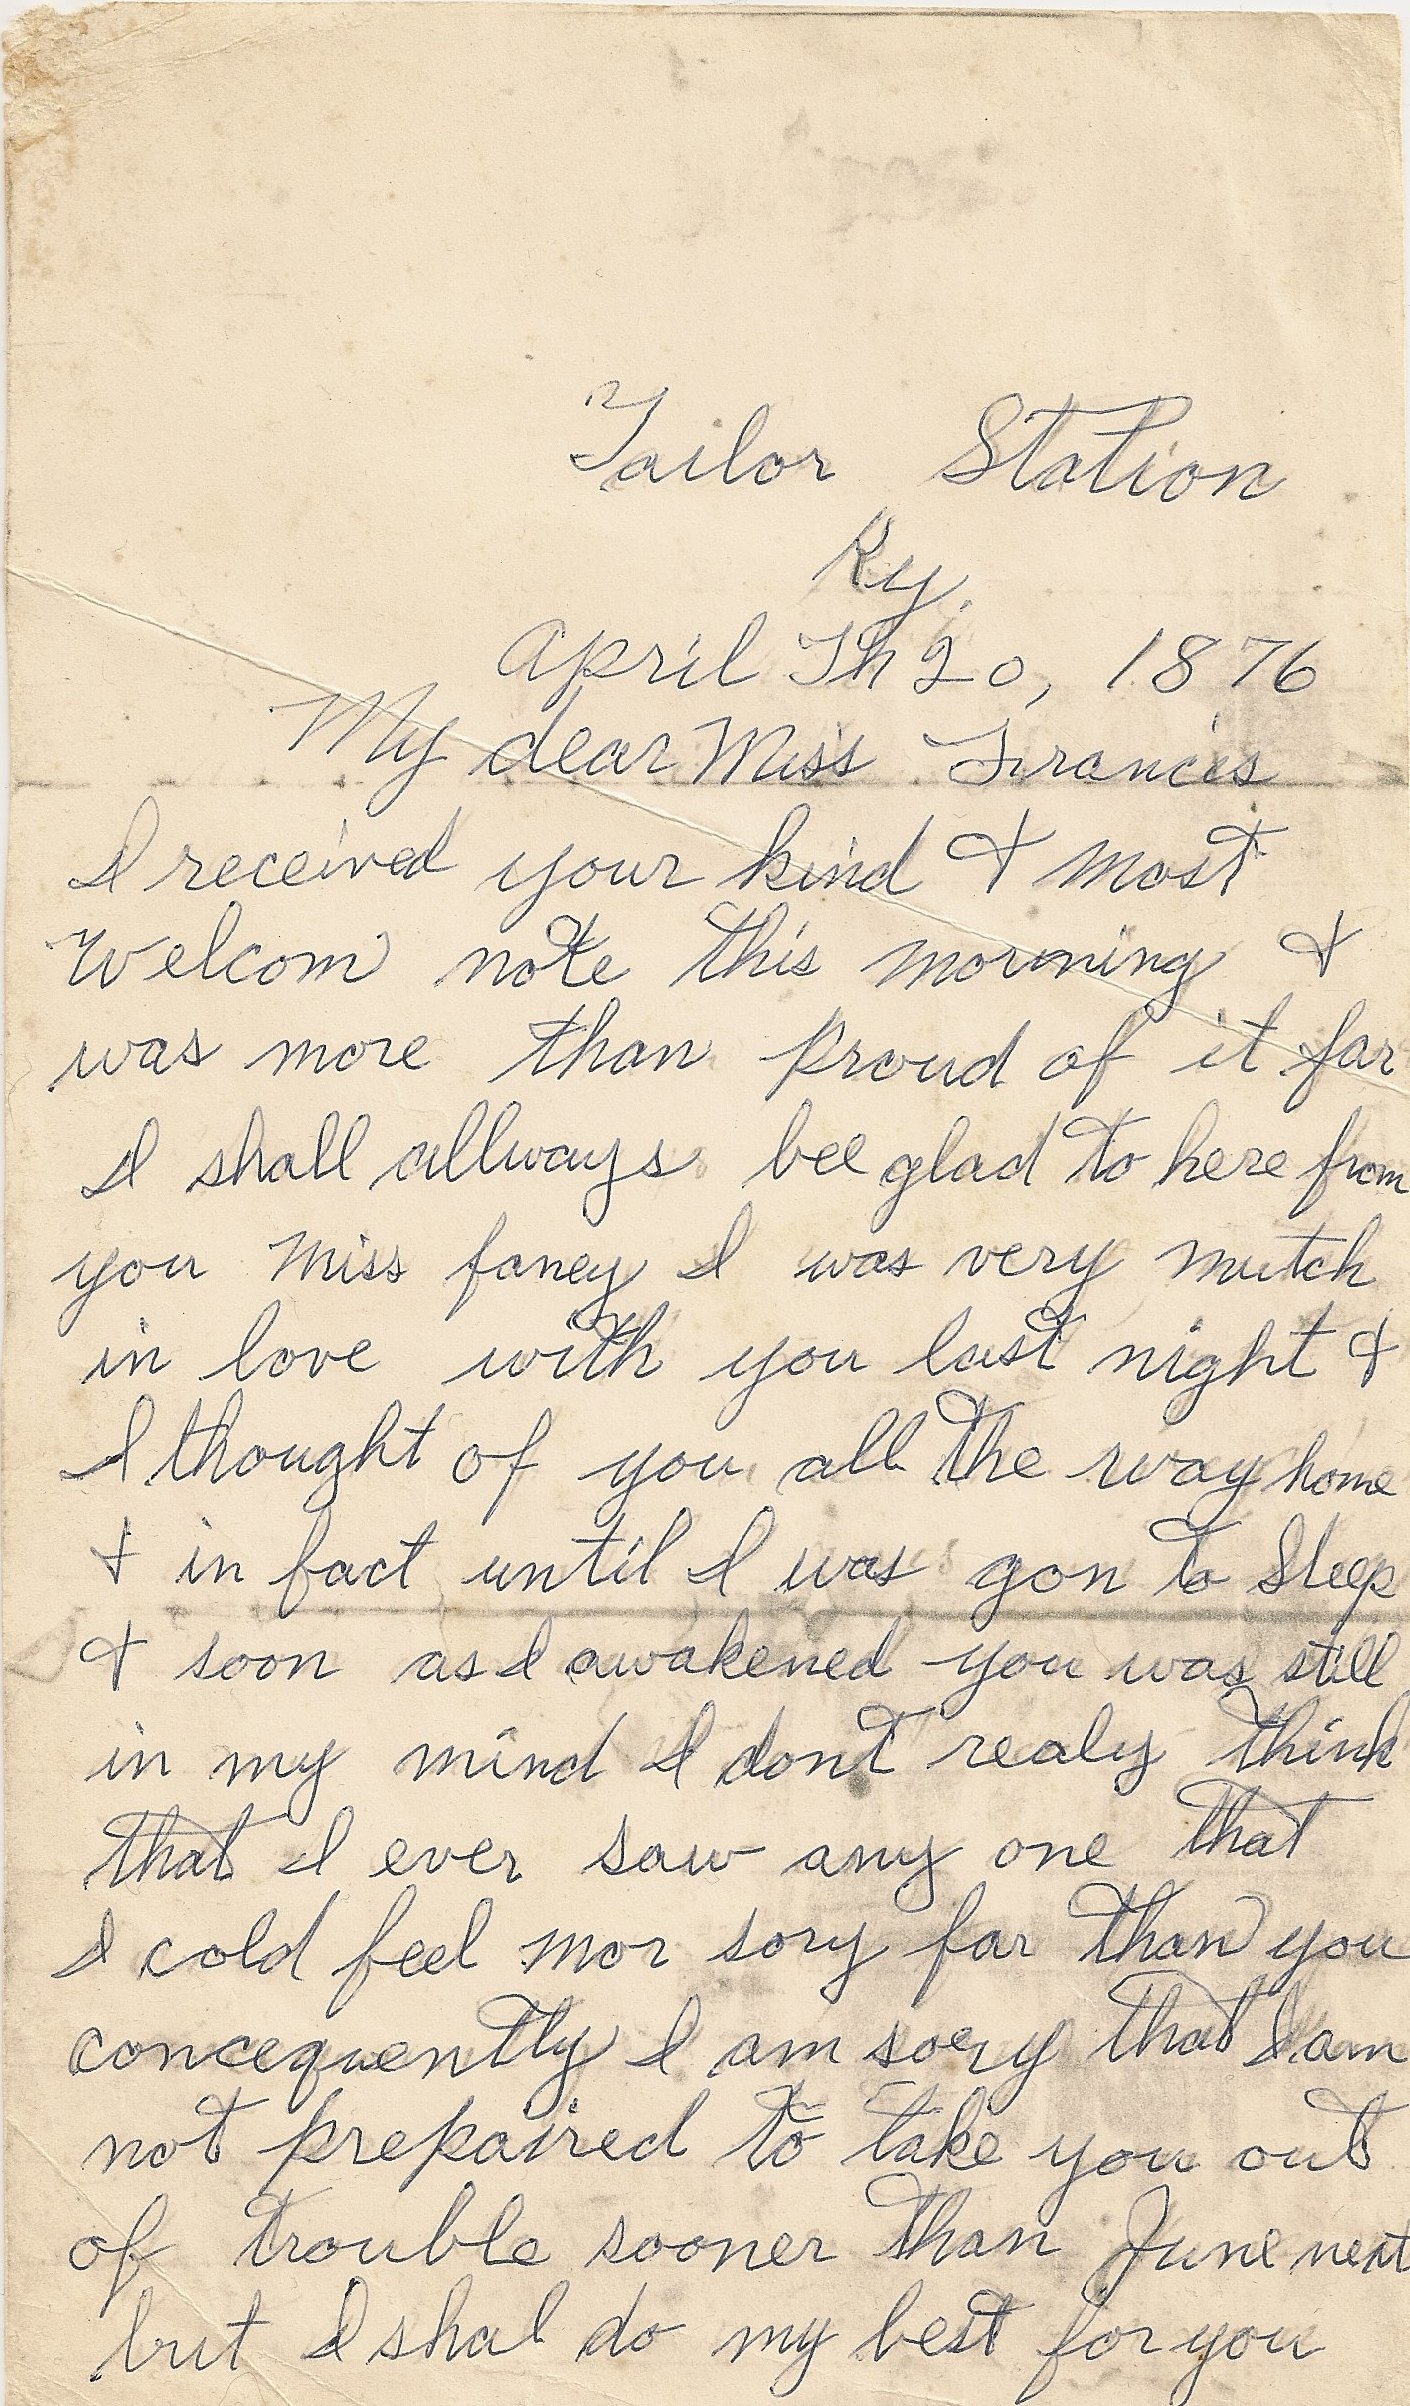 Tailor Station
Ky.
April Th 20, 1876
My dear Miss Francis
I received your kind & most
Welcom note this morning &
was more than proud of it far
I shall allways bee glad to here from
you Miss faney I was very mutch
in love with you last night &
I thought of you all the way home
& in fact until I was gon to Sleep
& soon as I awakened you was still
in my mind I dont realy think
that I ever saw any one that
I cold feel mor sory far than you
concequently I am sory that I am
not prepaired to take you out
of trouble sooner than June next
but I shal do my best for you